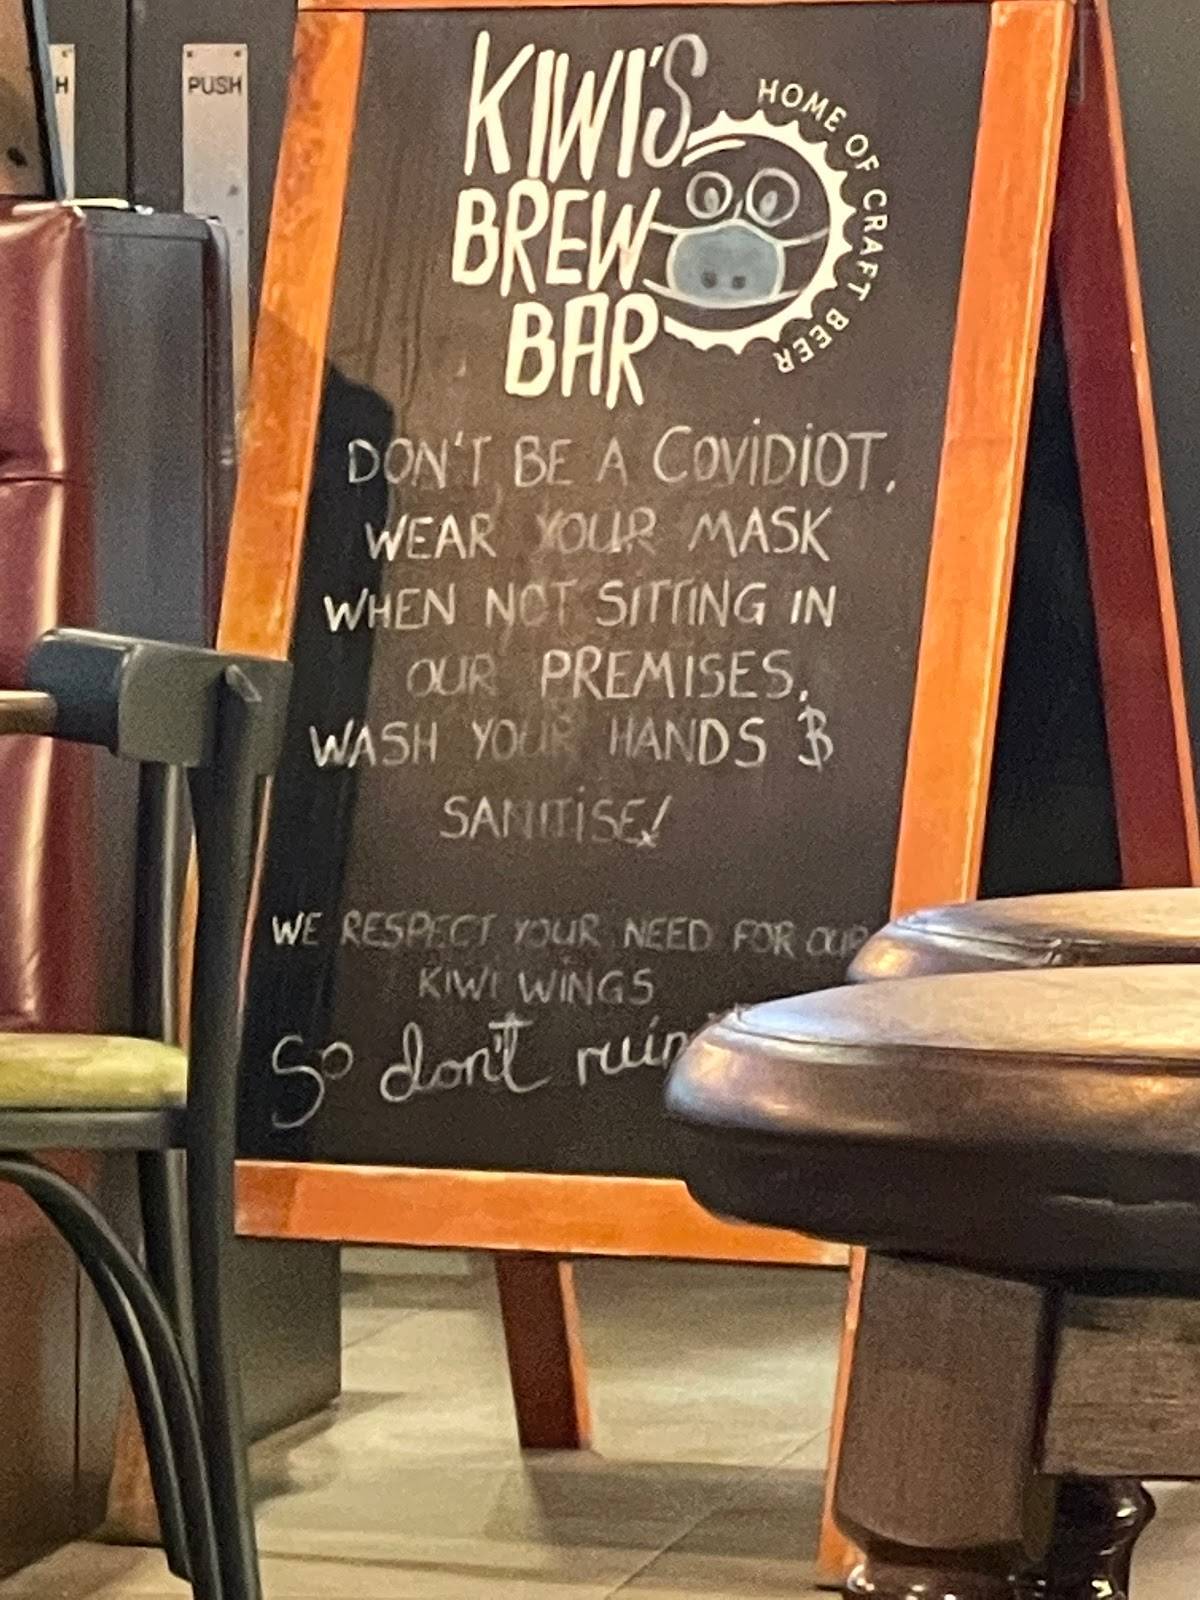 PUSH
H
KIWI'S
BREW
BAR
HOME OF CRAFT BEER
DON'T BE A COVIDIOT.
WEAR YOUR MASK
WHEN NOT SITTING IN
OUR PREMISES.
WASH YOUR HANDS &
SANITISE!
WE RESPECT YOUR NEED FOR OUR
KIWI WINGS
So don't ruin